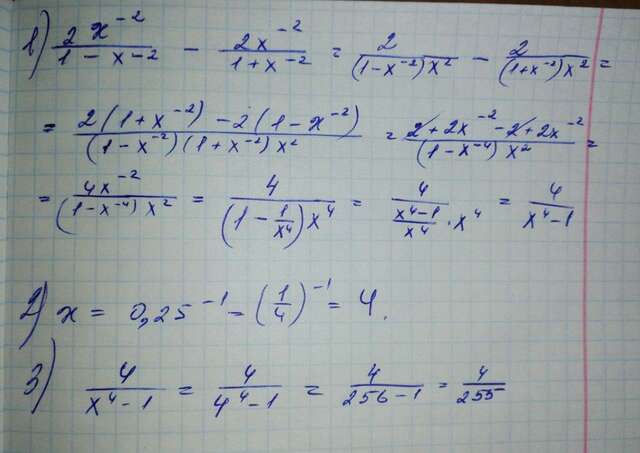 1) 2x^-2/(1-x-2) - 2x^-2/(1+x^-2) = 2/((1-x^-2)x^2) - 2/((1+x^-2)x^2) =
= (2(1+x^-2) - 2(1-x^-2))/((1-x^-2)(1+x^-2)x^2) = (2+2x^-2-2+2x^-2)/((1-x^-4)x^2) =
= 4x^-2/((1-x^-4)x^2) = 4/((1-1/x^4)x^4) = 4/((x^4-1)/x^4 · x^4) = 4/(x^4-1)
2) x = 0,25^-1 = (1/4)^-1 = 4.
3) 4/(x^4-1) = 4/(4^4-1) = 4/(256-1) = 4/255